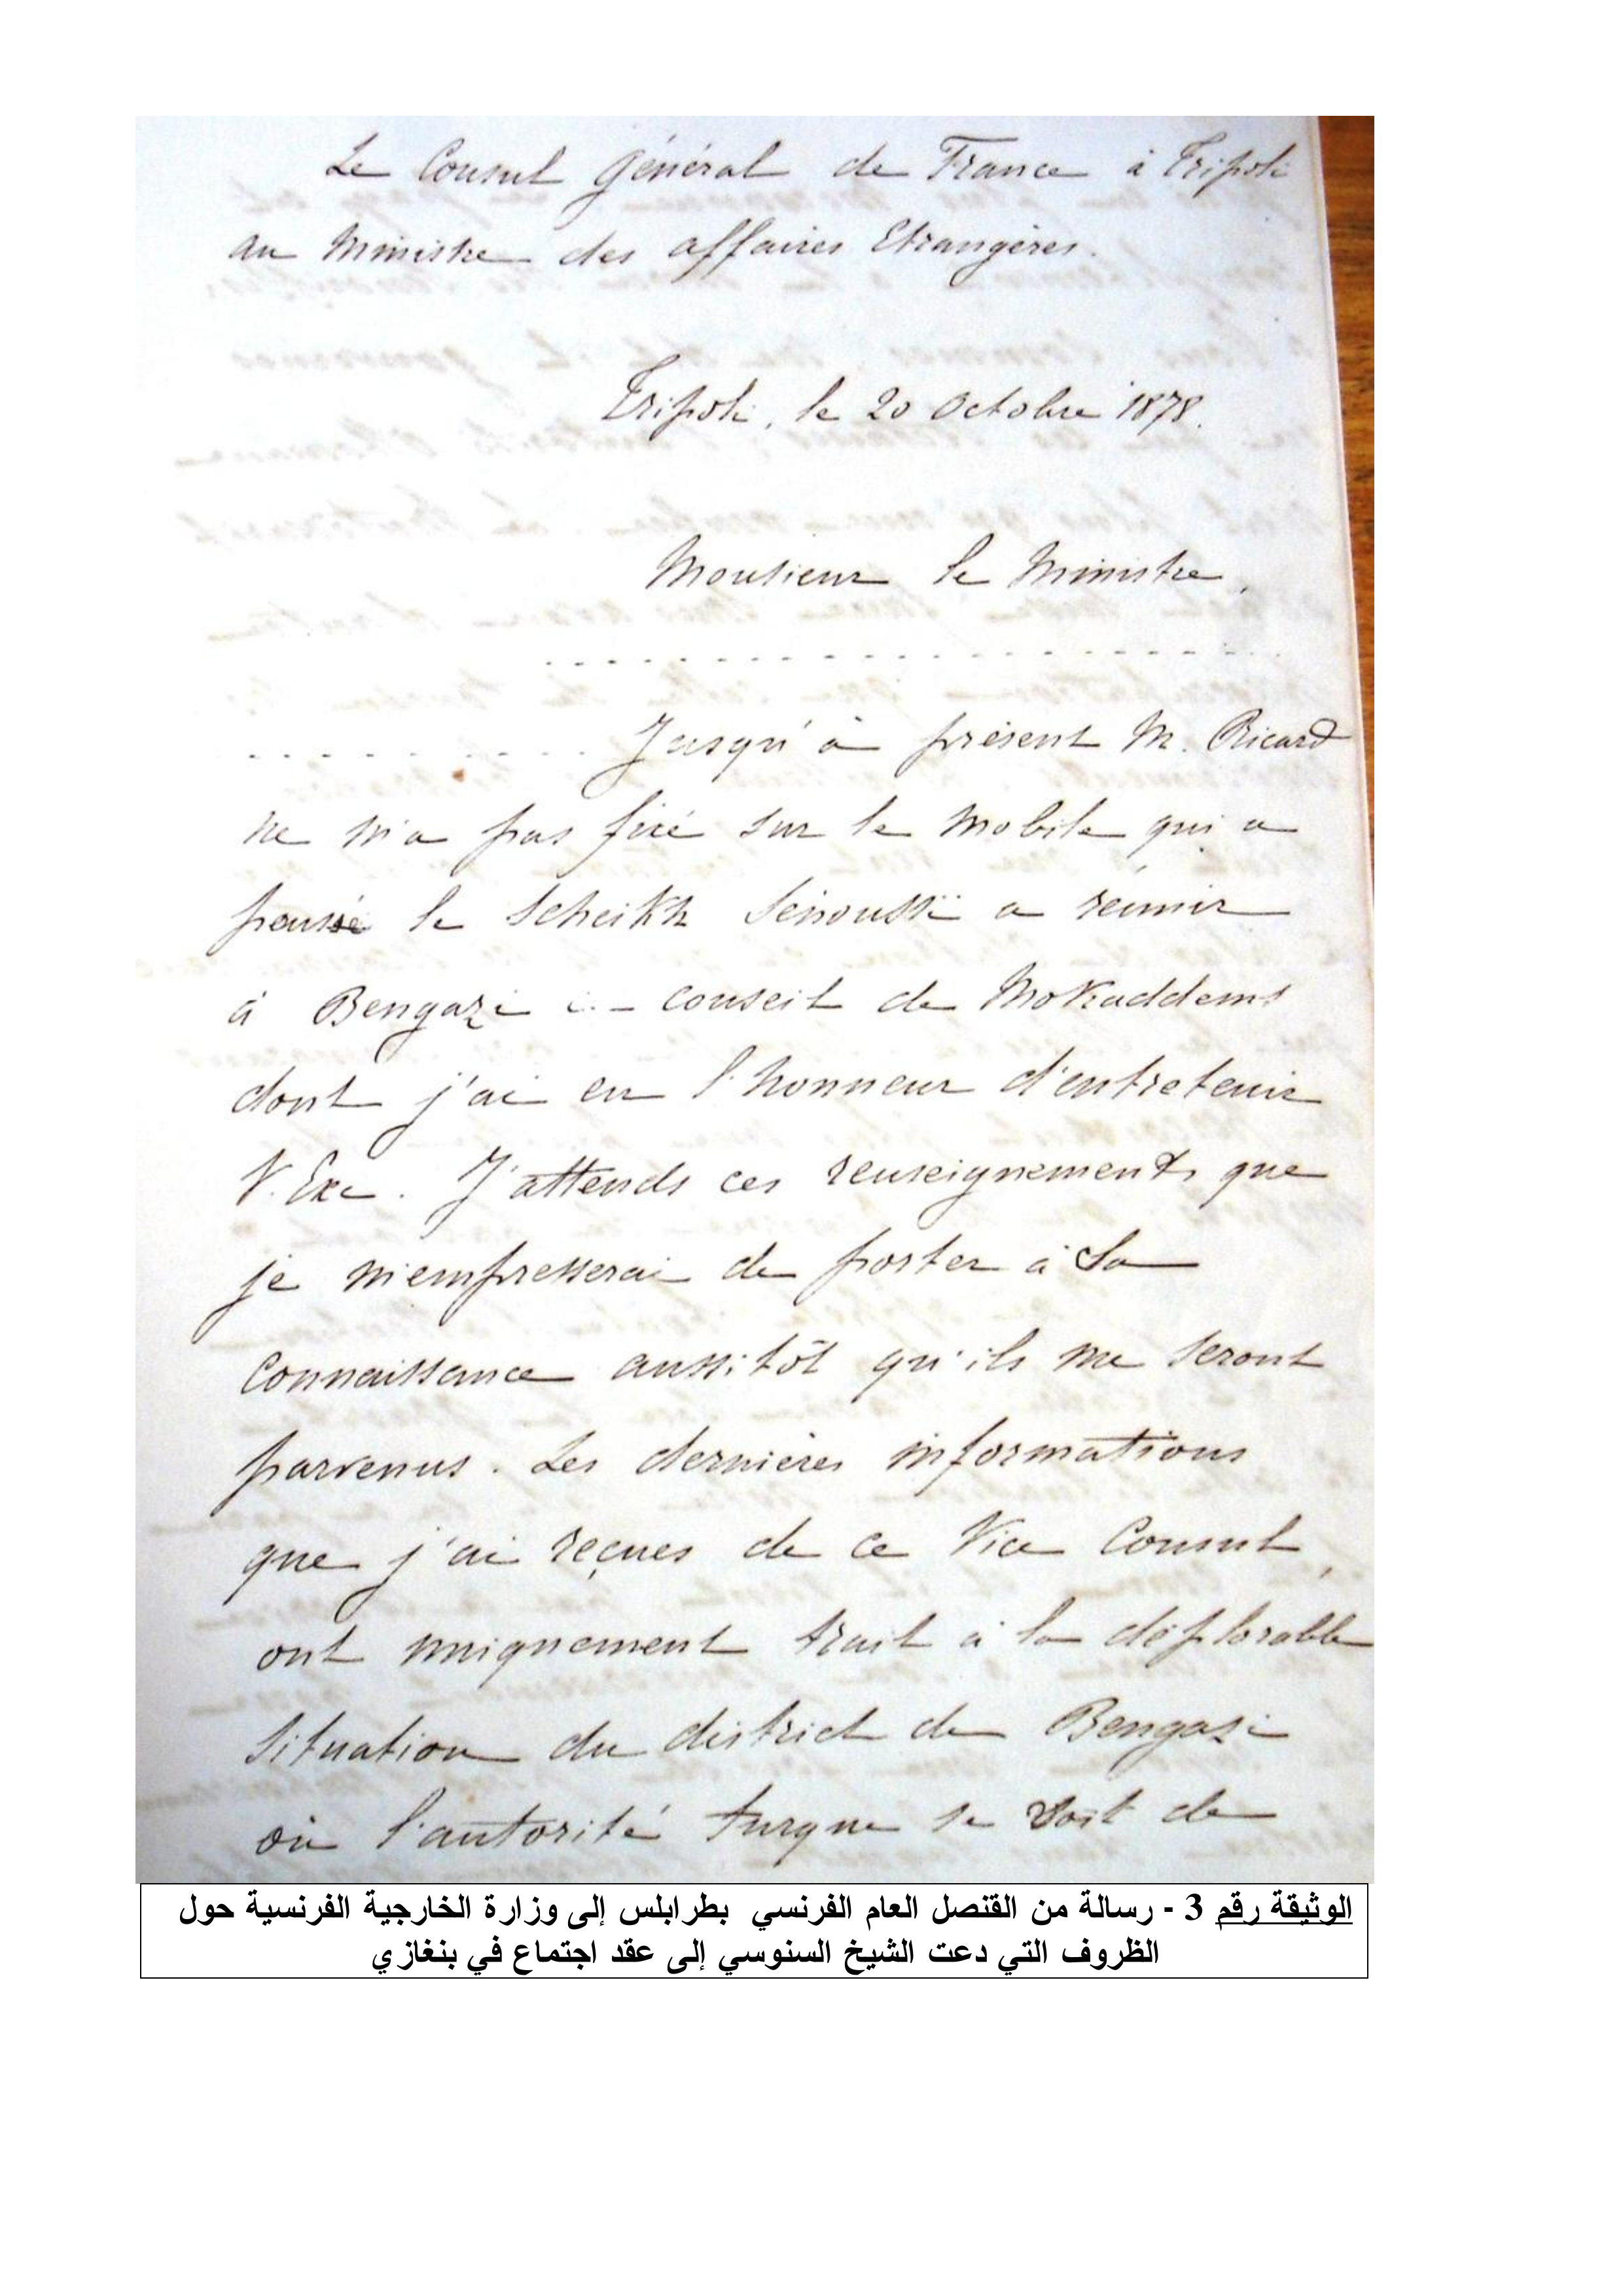 Le Consul Général de France à Tripoli
au Ministre des affaires Etrangères.
Tripoli, le 20 Octobre 1878.
Monsieur le Ministre,
. . . . . . . . . . . . . . . . . . . .
. . . . . . . . . . Jusqu'à présent M. Ricard
ne m'a pas fixé sur le mobile qui a
poussé le Scheikh Senoussï a réunir
à Bengazi conseil de Mokaddems
dont j'ai eu l'honneur d'entretenir
V. Exc. J'attends ces renseignements que
je m'empresserai de porter à Sa
connaissance aussitôt qu'ils me seront
parvenus. Les dernières informations
que j'ai reçues de ce Vice Consul,
ont uniquement trait à la déplorable
situation du district de Bengazi
où l'autorité turque se voit de
الوثيقة رقم 3 - رسالة من القنصل العام الفرنسي بطرابلس إلى وزارة الخارجية الفرنسية حول
الظروف التي دعت الشيخ السنوسي إلى عقد اجتماع في بنغازي